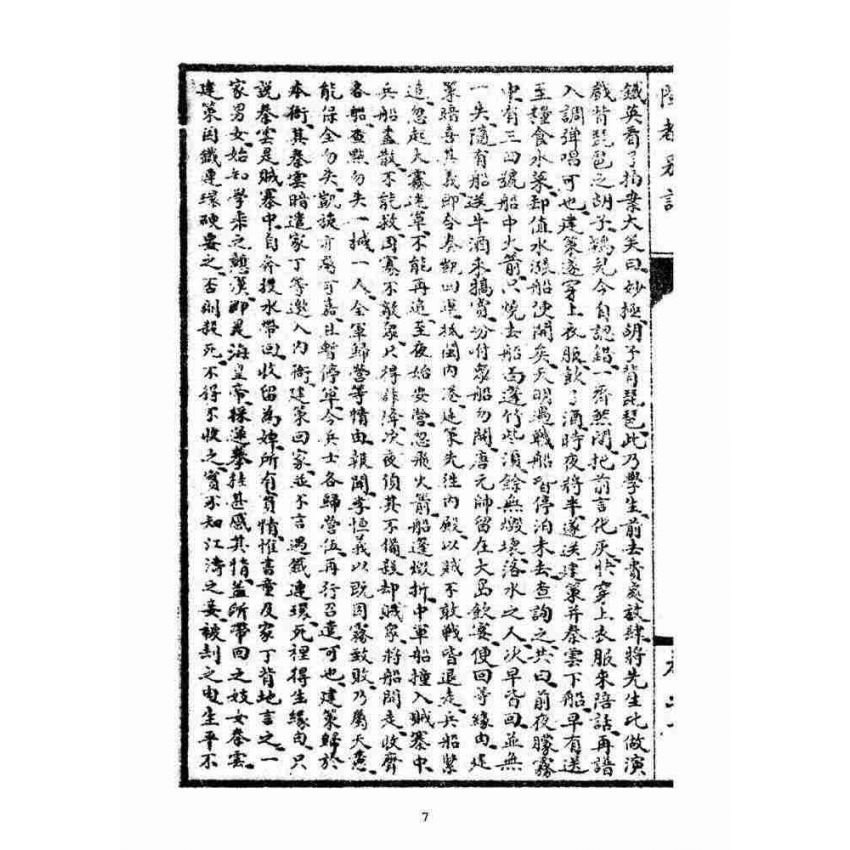 鐵英看了拍案大笑曰妙極胡子背琵琶此乃學生前去貴處放肆將先生比做演
戲背琵琶之胡子鴇兒今自認錯一齊照閉把前言化灰快穿上衣服來陪話再譜
入調彈唱可也建策遂穿上衣服飲了酒時夜將半遂送建策并秦雲下船早有送
至糧食水菜却值水漲船便開矣天明過戰船暫停泊未去查詢之共曰前夜朦霧
中有三四號船中火箭只燒去船面蓬竹些須餘無燬壞落水之人次早皆回並無
一失隨有船送牛酒來犒賞吩咐眾船勿開唐元帥留在大島飲宴便回等緣由建
策暗喜其義即令奏凱回澳抵閩內港建策先進內殿以賊不敢戰皆退走兵船緊
追忽起大霧迷罩不能再追至夜始安營忽飛火箭船蓬燬折中軍船撞入賊寨中
兵船盡散不能救因寡不敵眾只得詐降次夜偵其不備殺却賊眾將船開走收齊
各船查點勿失一械一人全軍歸營等情由報聞李恒義以既因霧致敗乃屬天意
能保全勿失凱旋亦屬可嘉且暫停軍令兵士各歸營伍再行召遣可也建策歸於
本衙其秦雲暗遣家丁等邀入內衙建策回家並不言遇鐵連環死裡得生緣由只
說秦雲是賊寨中自奔投水帶回收留為婢所有實情惟書童及家丁背地言之一
家男女始知學乖之戇漢即是海皇帝採蓮拳挂甚感其情蓋所帶回之妓女秦雲
建策因鐵連環硬要之否則殺死不得不收之實不知江濤之妾被刦之由生平不